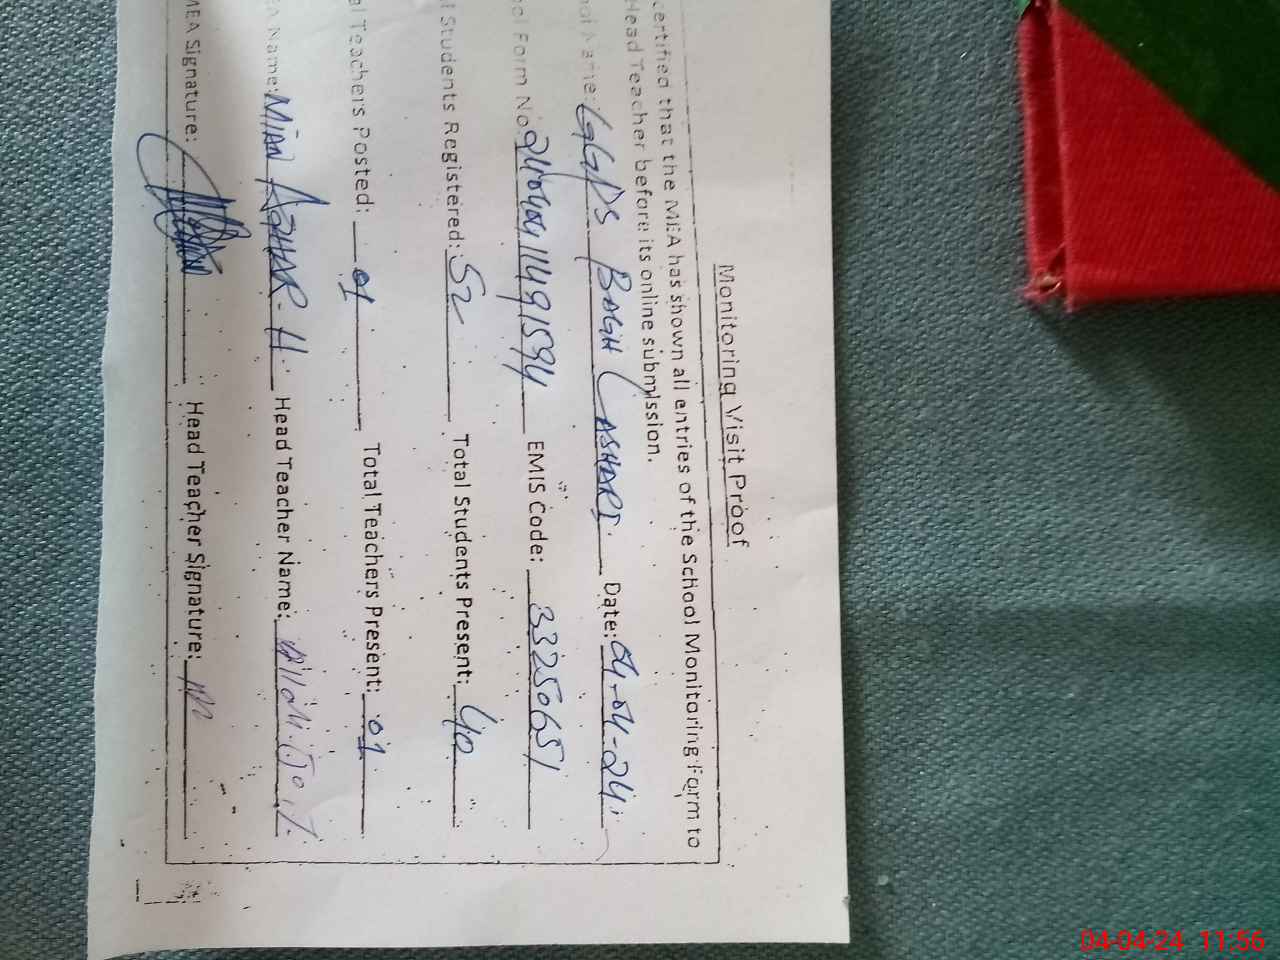 Monitoring Visit Proof
certified that the MEA has shown all entries of the School Monitoring Form to
Head Teacher before its online submission.
ool Name: GGPS BAGH LASHARI. Date: 04-04-24
ool Form No: EMIS Code: 33250651
l Students Registered: 52 Total Students Present: 40
al Teachers Posted: 01 Total Teachers Present: 01
EA Name: MIAN AZHAR. H. Head Teacher Name:
MEA Signature: Head Teacher Signature:
04-04-24 11:56